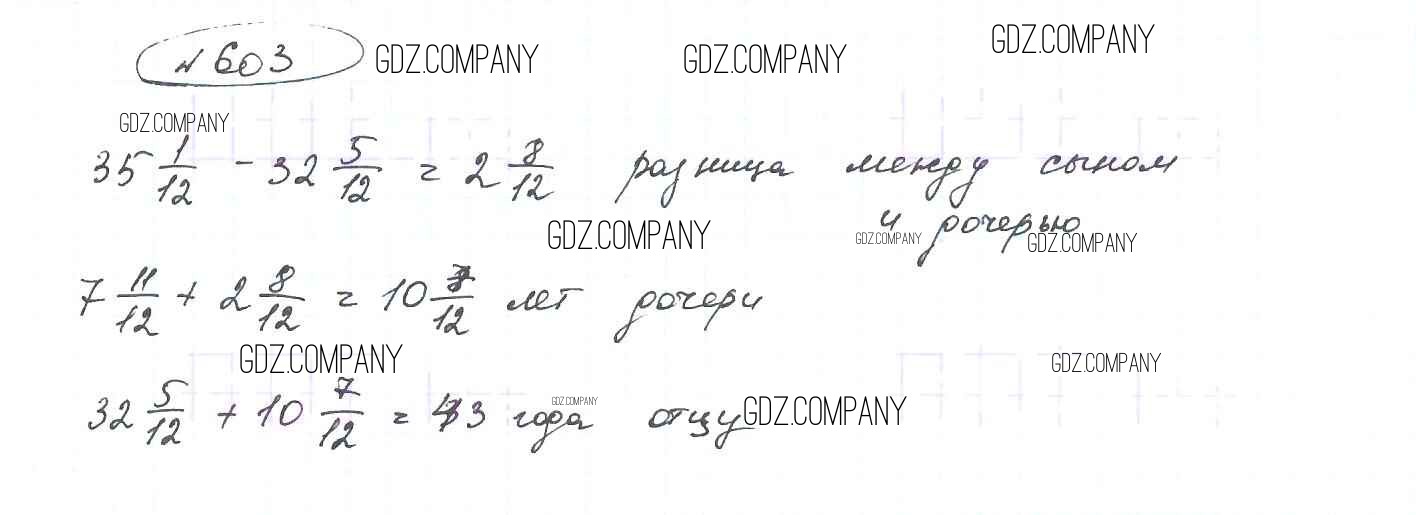 № 603 GDZ.COMPANY GDZ.COMPANY GDZ.COMPANY
GDZ.COMPANY
35 1/12 - 32 5/12 = 2 8/12 разница между сыном
GDZ.COMPANY GDZ.COMPANY и дочерью GDZ.COMPANY
7 11/12 + 2 8/12 = 10 7/12 лет дочери
GDZ.COMPANY GDZ.COMPANY
32 5/12 + 10 7/12 = 43 года GDZ.COMPANY отцу GDZ.COMPANY